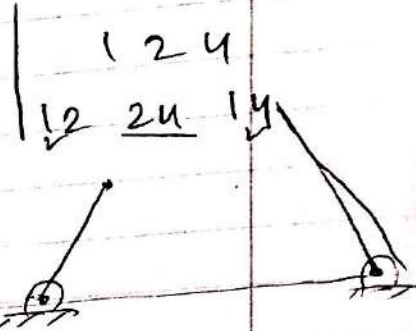 1 2 4
12 24 14